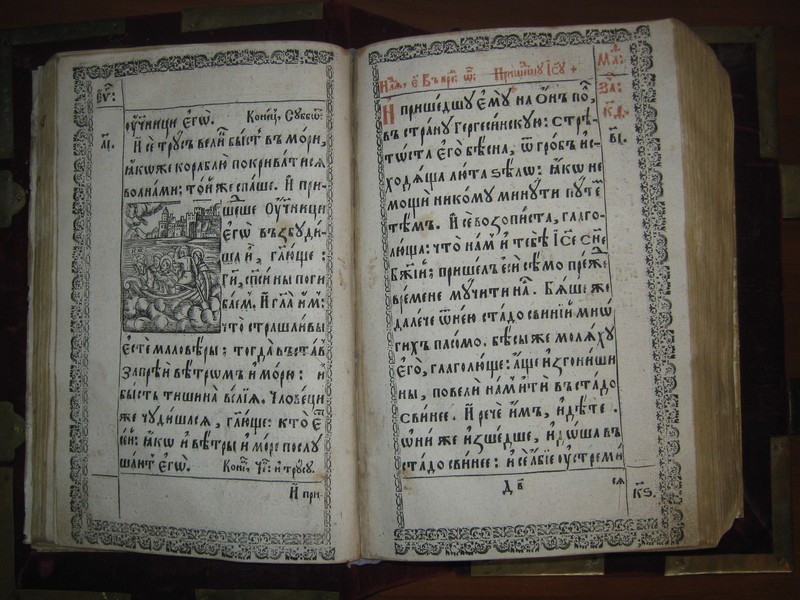 Еѵ҃:
оуч҃ници єгѡ̀. Конец̾, Суббѡ҄:
л҃і.
И се трус̾ велїй бысть в̾ мори,
ꙗкоже кораблю покриватися
волнами: той же спаше. И при-
шєдше оуч҃ници
єгѡ̀ въз̾буди-
ша и̑, гл҃юще:
Ги҃, сп҃си ны поги
баем̾. И гл҃а им̾:
что страшливы
єсте маловѣры; тогда въстав̾
запрѣти вѣтром̾ и морю: и
бысть тишина велїя. Чл҃овеци
же чудишася, гл҃юще: кто є҃
сей: ꙗкѡ и вѣтры и море послу
шают̾ єгѡ̀. Конец̾ и трусу.
И при-
Нед҃ля, є҃ Въ врѣ. ѡ҃: Пришедшу Іс҃у +
Мѳ҃.
За:
к҃и.
И пришедшу єму на ѡн̾ пол̾,
в̾ страну Гергесинскую: стрѣ-
тѡста єго бѣсна, ѿ гроб̾ ис-
ходяща люта ѕѣлѡ: ꙗкѡ не
мощи никому минути путе҃
тѣм̾. И се возописта, глаго-
люща: что нам̾ и тебѣ Іс҃е Сн҃е
Бж҃ій; пришел̾ єси сѣмо преж҃е
времене мучити на҃. Бяше же
далече ѿ нею стадо свиній мнѡ
гих̾ пасомо. бѣсы же моляху
єго, глаголюще: аще изгониши
ны, повели нам̾ ити в̾ стадо
свинее. И рече им̾, идѣте.
ѡни же изшедше, идѡша в̾
стадо свинее: и се абіе оустреми
ся
к҃ѕ.